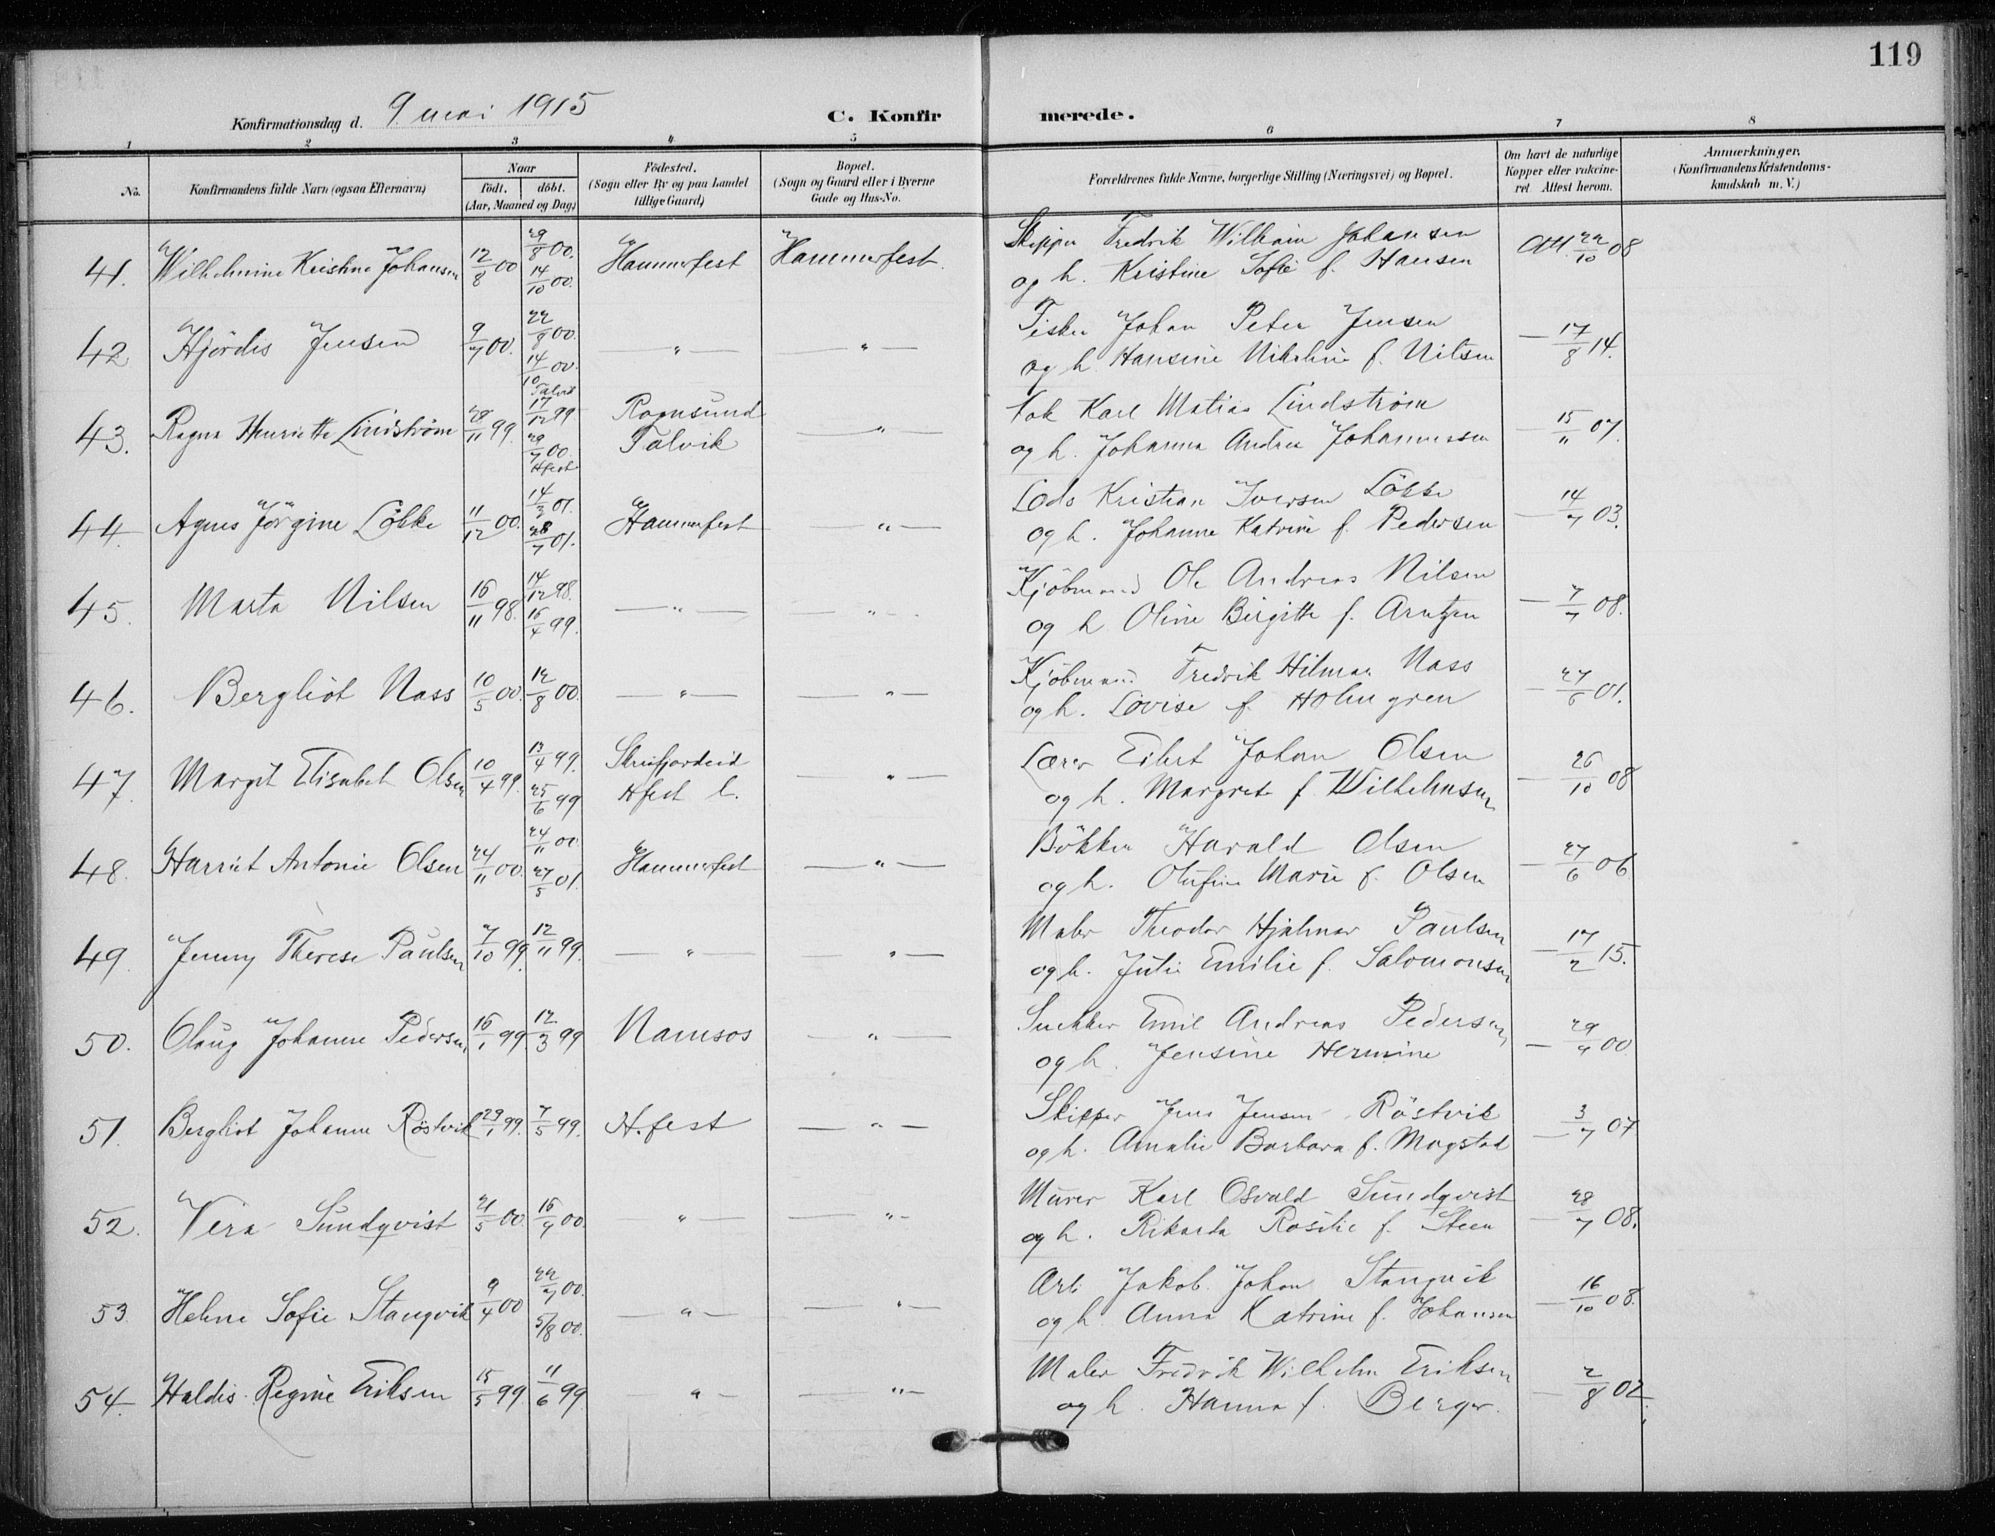 119
Konfirmationsdag d. 9 mai 1915 C. Konfirmerede.
1 2 3 4 5 6 7 8
No. Konfirmandens fulde Navn (ogsaa Efternavn) Naar født. døbt. (Aar, Maaned og Dag) Fødested. (Sogn eller By og paa Landet tillige Gaard) Bopæl. (Sogn og Gaard eller i Byerne Gade og Hus-No. Forældrenes fulde Navne, borgerlige Stilling (Næringsvei) og Bopæl. Om havt de naturlige Kopper eller vakcineret Attest herom. Anmærkninger. (Konfirmandens Kristendomskundskab m. V.)
41. Wilhelmine Kristine Johansen 12/8 00 29/8 00. 14/10 00. Hammerfest Hammerfest. Skipper Fredrik Wilhelm Johansen Att. 22/10 08
og h. Kristine Sofie f. Hansen
42 Hjördis Jensen 9/7 00. 22/8 00. 14/10 00. — " — — " — Fisker Johan Peter Jensen — 17/8 14.
og h. Hansine Nikoline f. Nilsen
43. Ragna Henriette Lindstrøm 28/11 99. Talvik 17/12 99 29/7 00. Hfest Rognsund Talvik — " — Karl Matias Lindstrøm — 15/11 07.
og h. Johanna Andrea Johannessen
44. Agnes Jörgine Lökke 11/12 00. 14/3 01. 28/7 01. Hammerfest " — Lods Kristian Iversen Lökke — 14/7 03.
og h. Johanne Katrine f. Pedersen
45. Marta Nilsen 16/11 98. 14/12 98. 16/4 99. — " — — " — Kjöbmand Ole Andreas Nilsen — 7/7 08.
og h. Oline Birgitte f. Arntzen
46. Bergliot Nass 10/5 00. 12/8 00. — " — — " — Kjöbmand Fredrik Hilmar Nass — 27/6 01.
og h. Lovise f. Holmgren
47. Margit Elisabet Olsen 10/4 99. 13/4 99. 25/6 99 Skreifjordeid Hfest l. — " — Lærer Eilert Johan Olsen — 26/10 08
og h. Margrete f. Wilhelmsen
48. Harriet Antonie Olsen 24/11 00. 24/11 00 27/5 01. Hammerfest — " — Bökker Harald Olsen — 27/6 06
og h. Olufine Marie f. Olsen
49. Jenny Therese Paulsen 7/10 99. 12/11 99. — " — — " — Maler Theodor Hjalmar Paulsen — 17/2 15.
og h. Julie Emilie f. Salomonsen
50. Olaug Johanne Pedersen 16/1 99. 12/3 99 Namsos — " — Snekker Emil Andreas Pedersen — 29/9 00
og h. Jensine Hermine
51. Bergliot Johanne Röstvik 29/1 99. 7/5 99. H.fest — " — Skipper Jens Jensen Röstvik — 3/7 07
og h. Amalie Barbara f. Mogstad
52. Vera Sundqvist 21/5 00. 16/9 00. — " — — " — Murer Karl Osvald Sundqvist — 28/7 08.
og h. Rikarda Rosilie f. Steen
53. Helene Sofie Stangvik 9/4 00 22/7 00. 5/8 00. — " — — " — Arb. Jakob Johan Stangvik — 16/10 08.
og h. Anna Katrine f. Johansen
54. Haldis Regine Eriksen 15/5 99. 11/6 99 " — — " — Maler Fredrik Wilhelm Eriksen — 2/8 02.
og h. Hanna f. Berger.